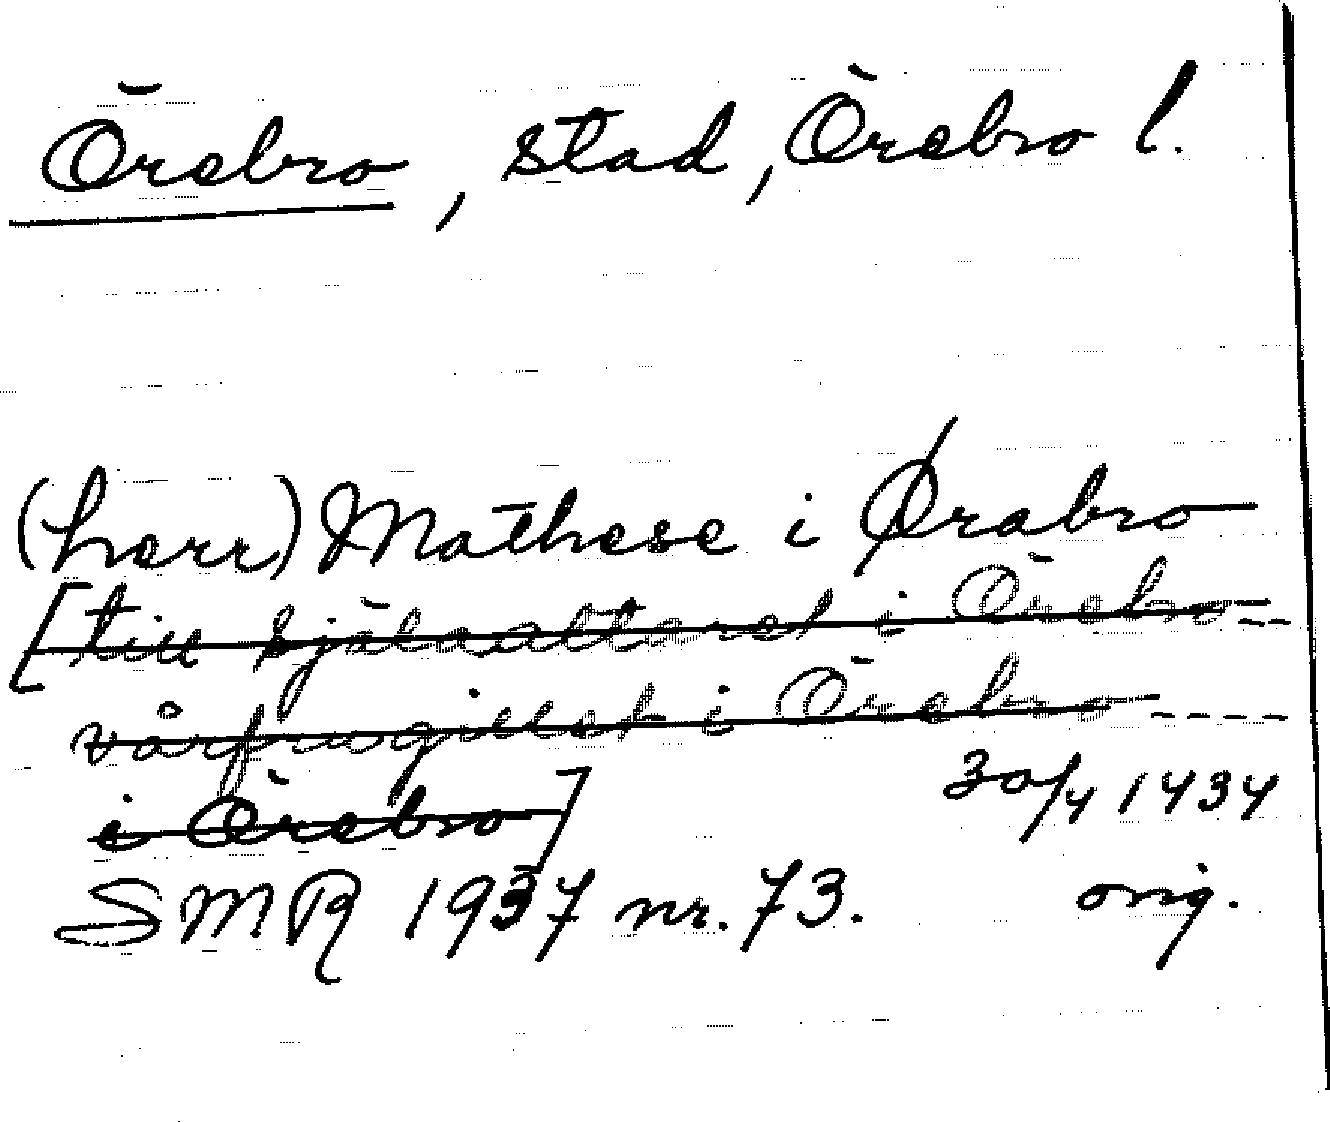 Örebro, stad, Örebro l.
(herr) Mathese i Ørabro
[till själaaltaret i Örebro---
vårfrugillet i Örebro----
i Örebro] 30/4 1434
SMR 1937 nr. 73. orig.